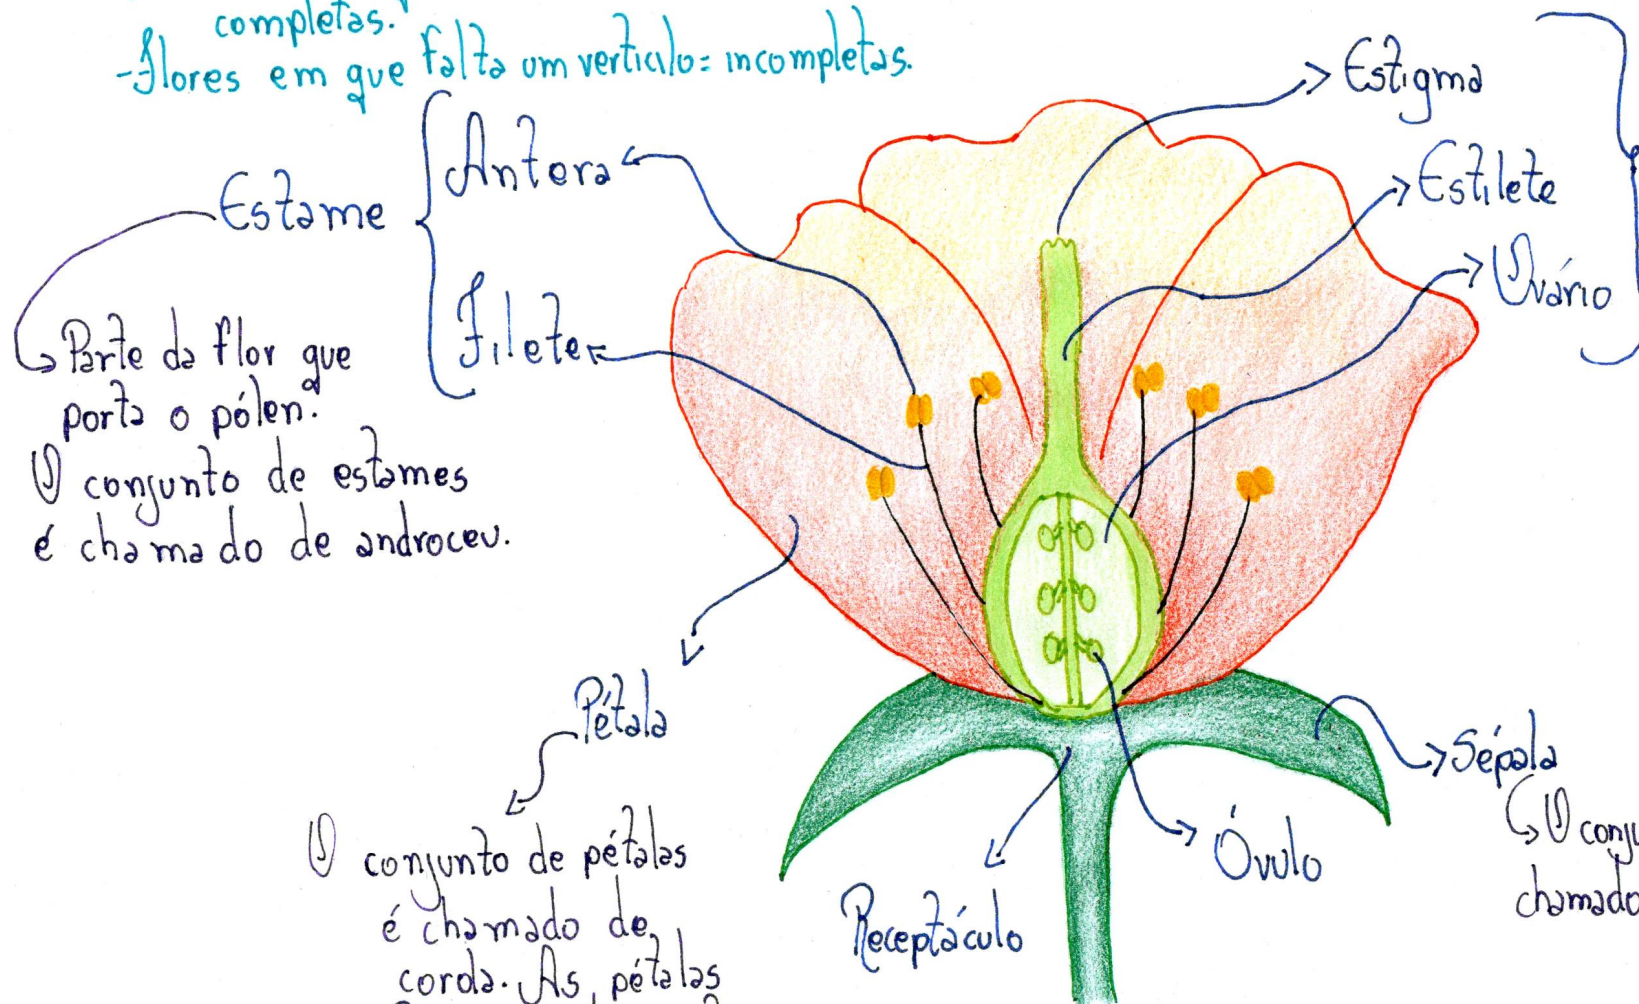 completas.
-Flores em que falta um verticilo = incompletas.
Estame
Antera
Filete
Parte da flor que
porta o pólen.
O conjunto de estames
é chamado de androceu.
Estigma
Estilete
Ovário
Pétala
O conjunto de pétalas
é chamado de
corola. As pétalas
Receptáculo
Óvulo
Sépala
O conju
chamado